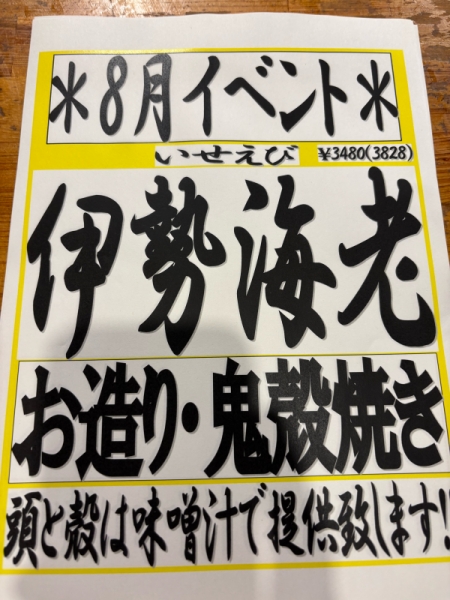 ＊8月イベント＊
いせえび ¥3480(3828)
伊勢海老
お造り・鬼殻焼き
頭と殻は味噌汁で提供致します!!